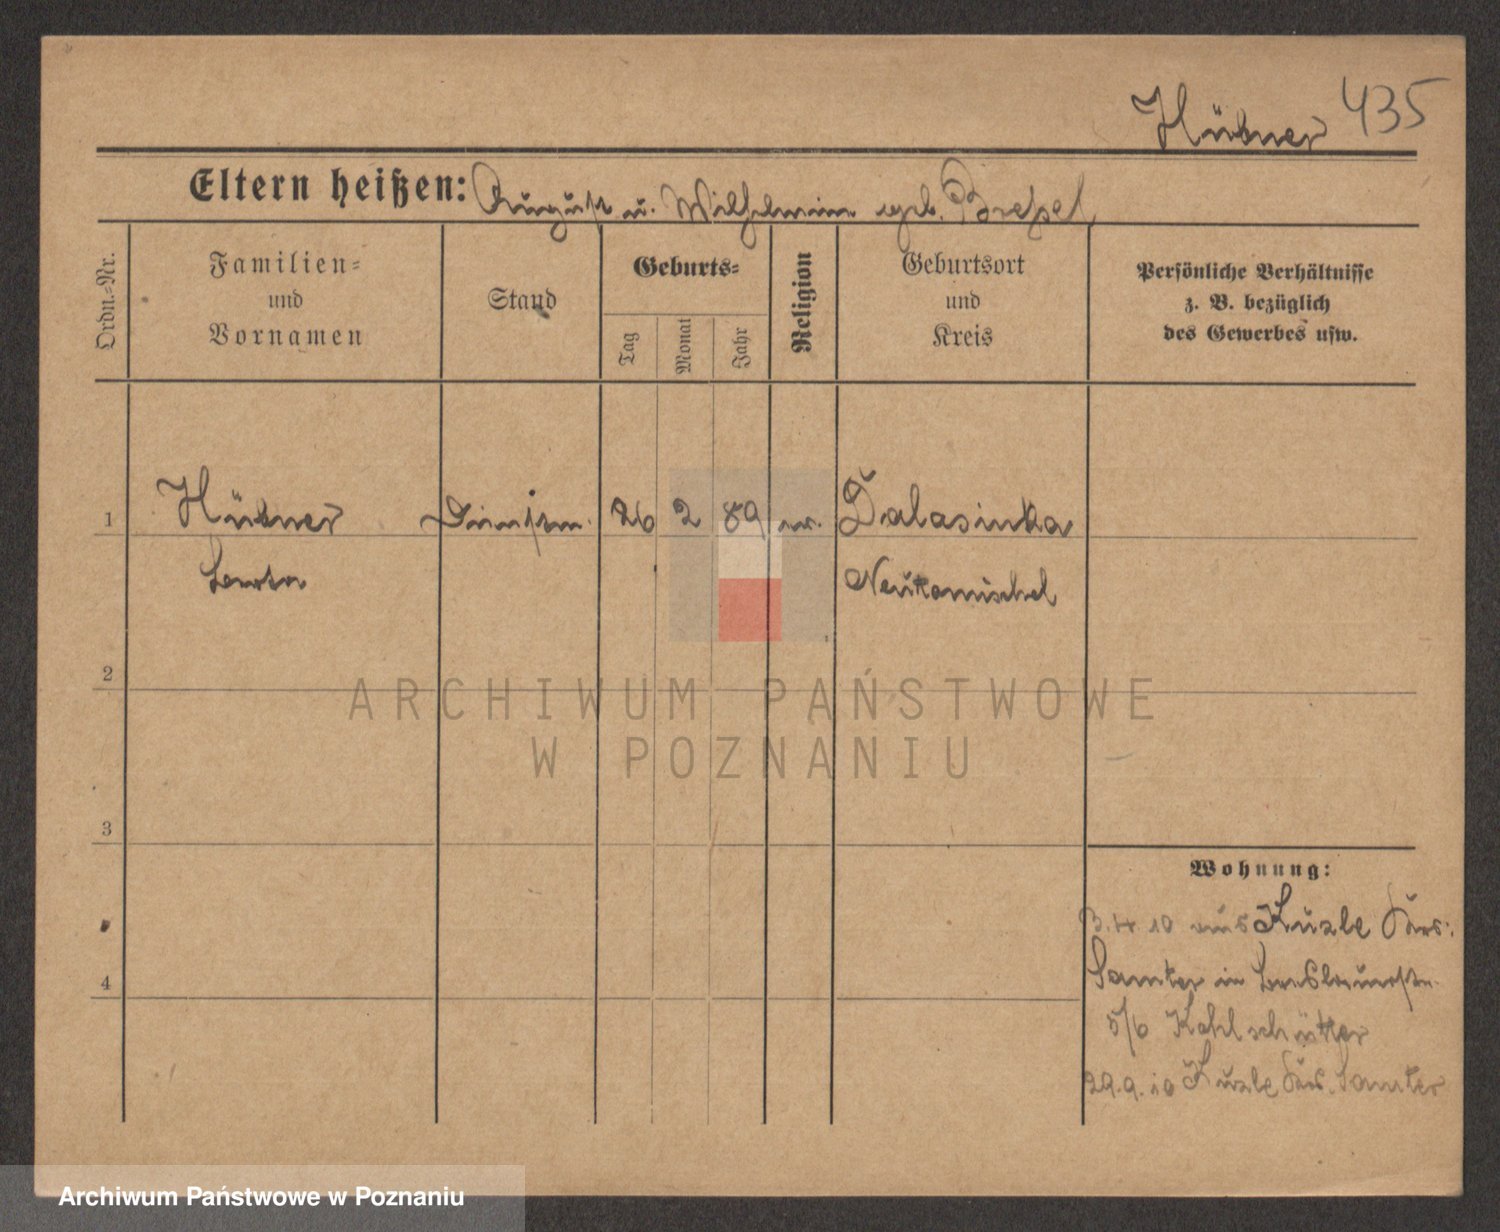 Hübner 435
Eltern heißen: August u. Wilhelmine geb.
Ordn.-Nr.
Familien-
und
Vornamen
Stand
Geburts-
Tag
Monat
Jahr
Religion
Geburtsort
und
Kreis
Persönliche Verhältnisse
z. B. bezüglich
des Gewerbes usw.
1 Hübner Dienstm. 26 2 89 ev.
Berta Neutomischel
2
3
4
Wohnung:
3.4 10 aus Kuzle Krs.
Samter in
5/6 Kohlschütter
29.9.10 Kuzle Krs. Samter
ARCHIWUM PAŃSTWOWE
W POZNANIU
Archiwum Państwowe w Poznaniu